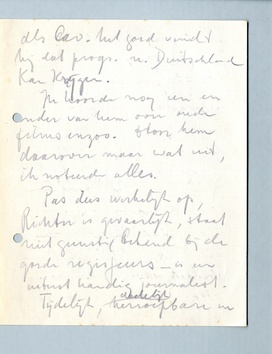 als Cav. het goed vindt
hij dat progr. n. Duitschland
kan krijgen.
Ik hoorde nog een en
ander van hem over oude
films enzoo. Hoor hem
daarover maar wat uit,
ik noteerde alles.
Pas dus werkelijk op,
Richter is gevaarlijk, staat
niet gunstig bekend bij de
goede regisseurs – is een
uiterst handig journalist.
Tijdelijk, dadelijk
herroepbare en